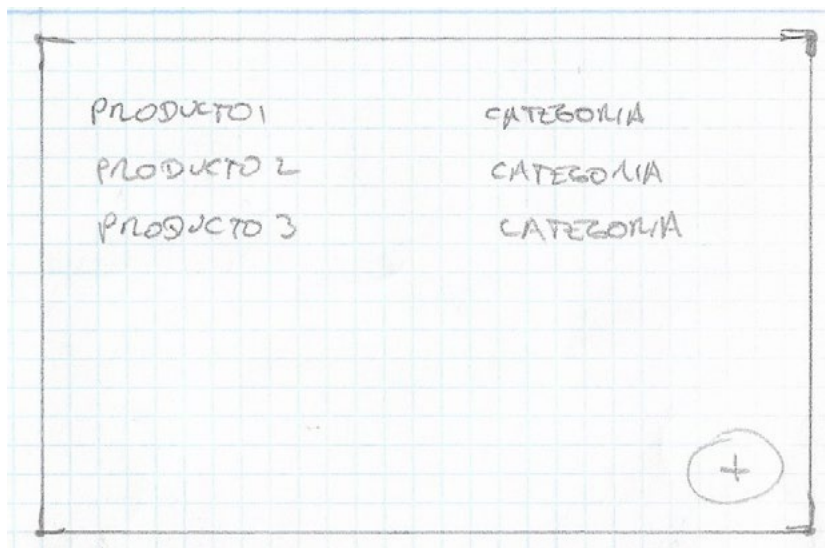 PRODUCTO 1 CATEGORIA
PRODUCTO 2 CATEGORIA
PRODUCTO 3 CATEGORIA
+